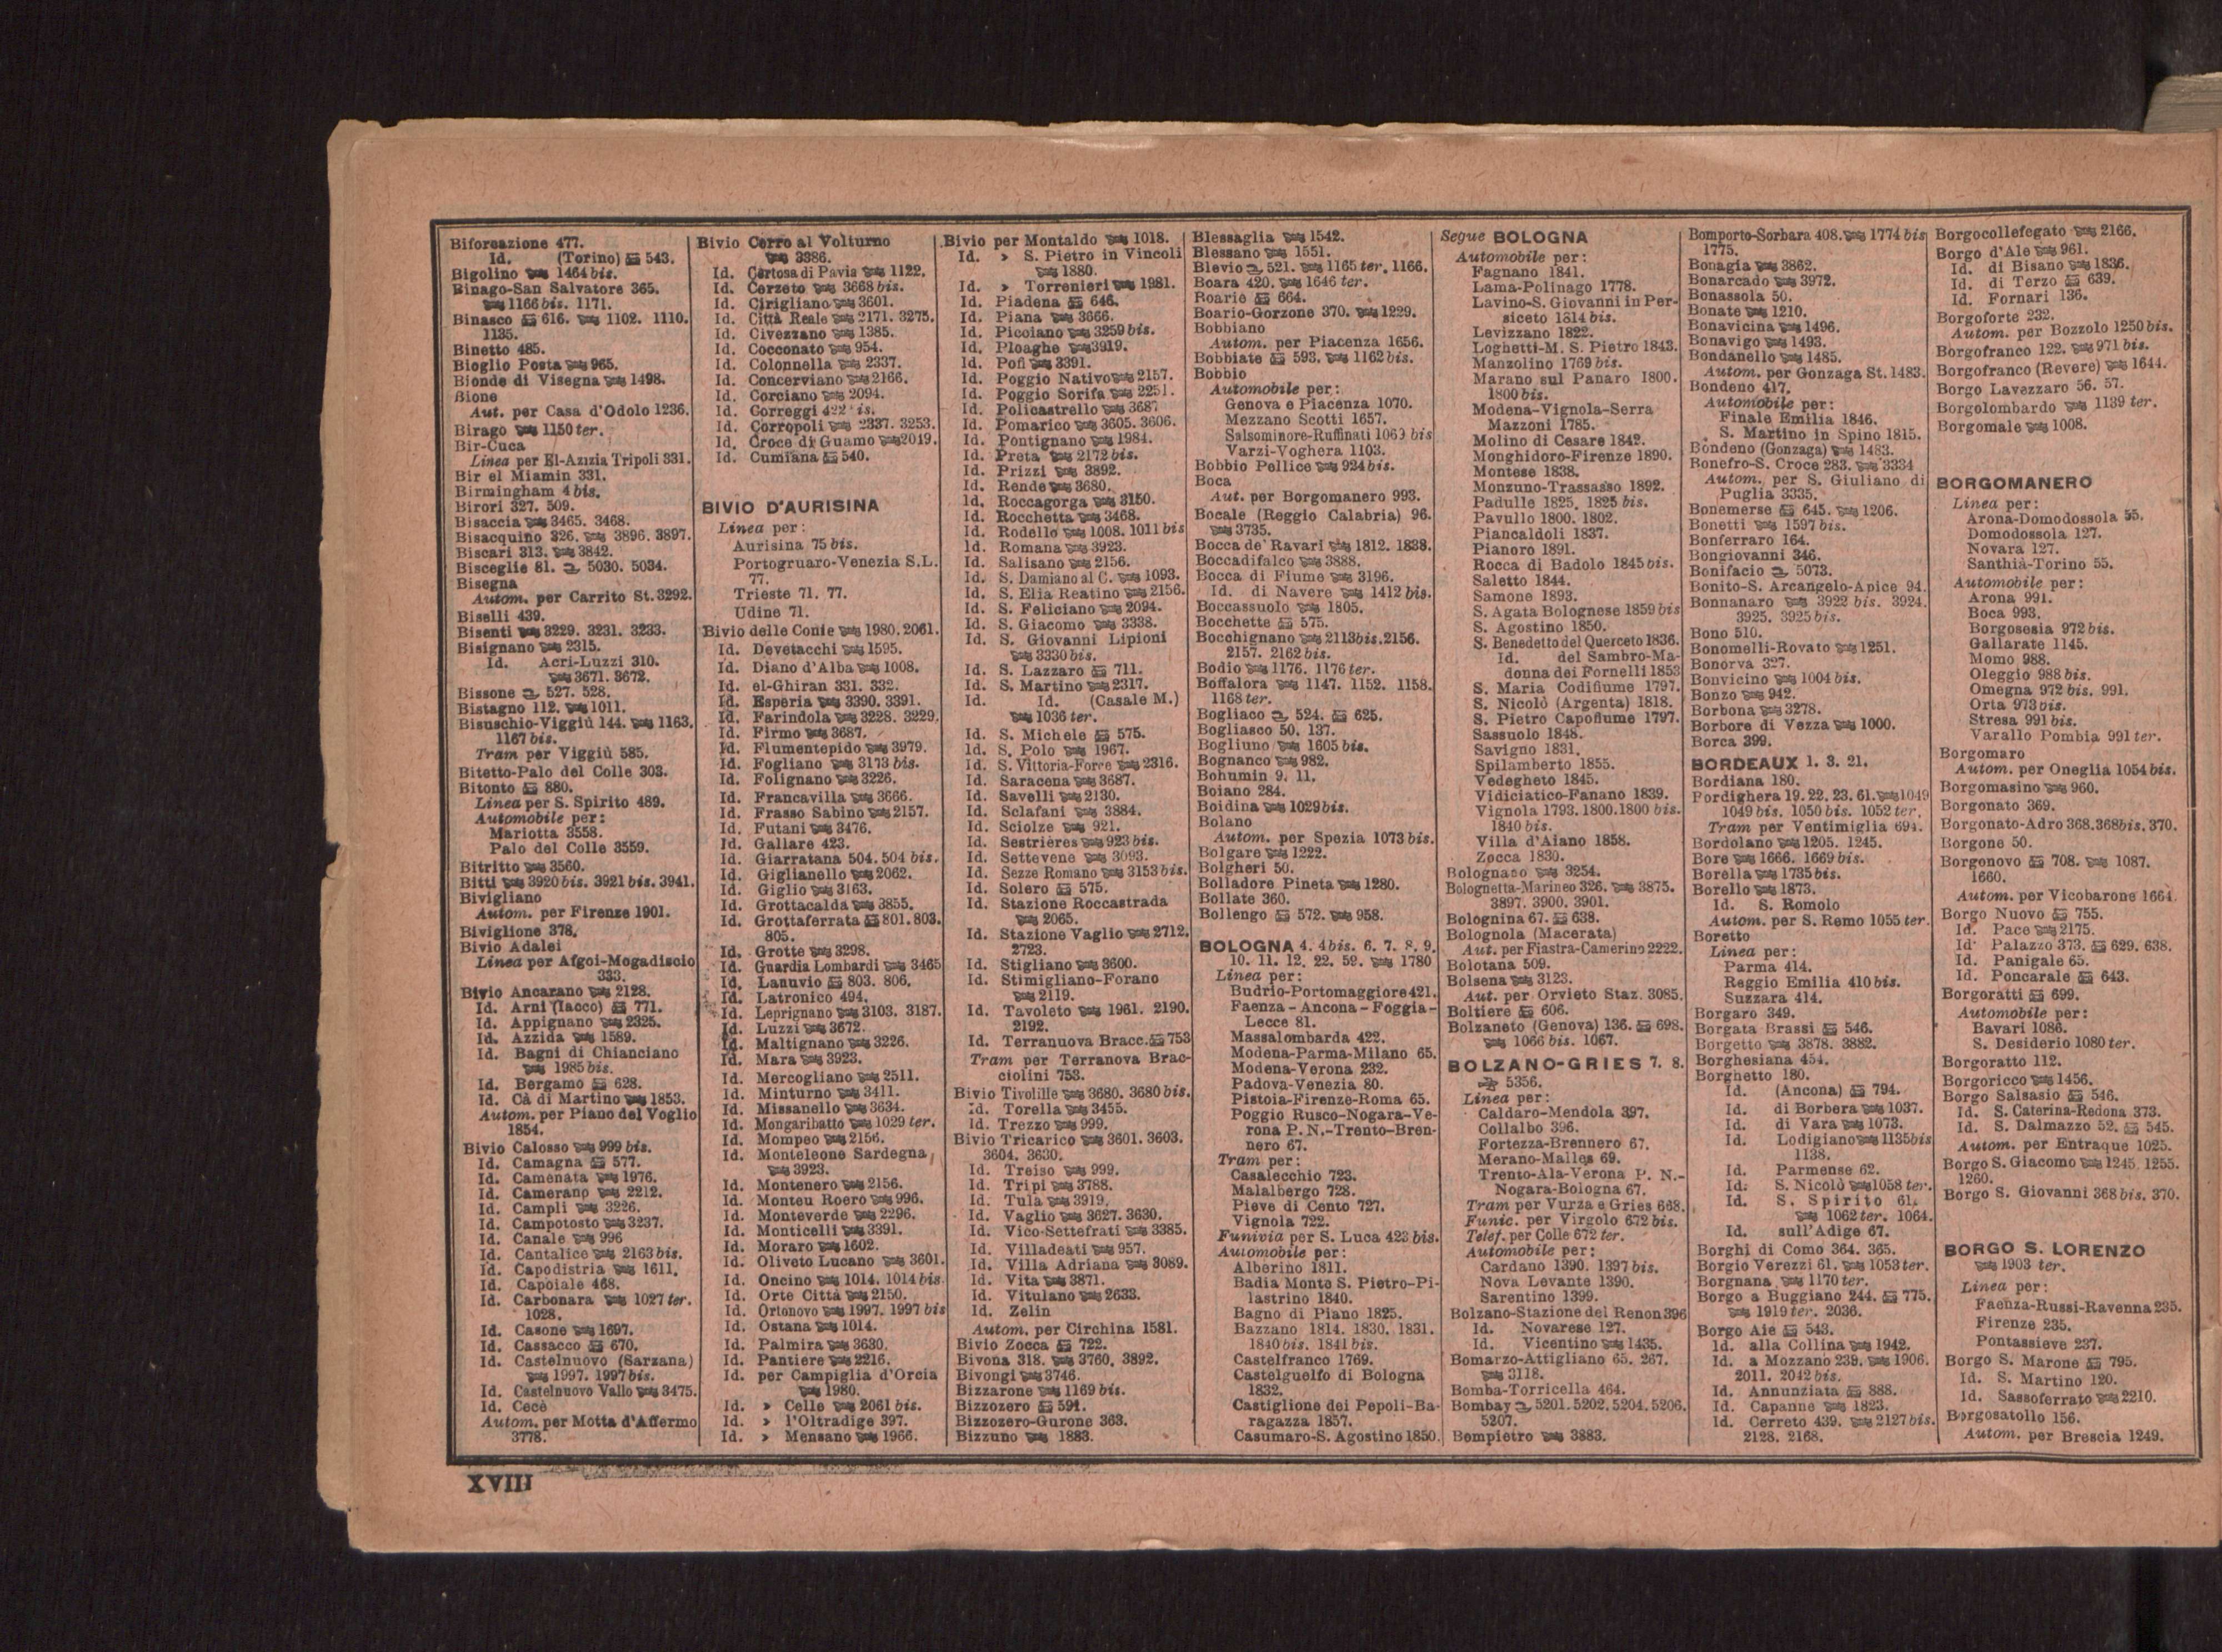 Biforcazione 477.
Id. (Torino) 543.
Bigolino 1464 bis.
Binago-San Salvatore 365.
1166 bis. 1171.
Binasco 616. 1102. 1110.
1135.
Binetto 485.
Bioglio Posta 965.
Bionde di Visegna 1498.
Bione
Aut. per Casa d'Odolo 1236.
Birago 1150 ter.
Bir-Cuca
Linea per El-Azizia Tripoli 331.
Bir el Miamin 331.
Birmingham 4 bis.
Birori 327. 509.
Bisaccia 3465. 3468.
Bisacquino 326. 3896. 3897.
Biscari 313. 3842.
Bisceglie 81. 5030. 5034.
Bisegna
Autom. per Carrito St. 3292.
Biselli 439.
Bisenti 3229. 3231. 3233.
Bisignano 2315.
Id. Acri-Luzzi 310.
3671. 3672.
Bissone 527. 528.
Bistagno 112. 1011.
Bisuschio-Viggiù 144. 1163.
1167 bis.
Tram per Viggiù 585.
Bitetto-Palo del Colle 303.
Bitonto 880.
Linea per S. Spirito 489.
Automobile per:
Mariotta 3558.
Palo del Colle 3559.
Bitritto 3560.
Bitti 3920 bis. 3921 bis. 3941.
Bivigliano
Autom. per Firenze 1901.
Biviglione 378.
Bivio Adalei
Linea per Afgoi-Mogadiscio
333.
Bivio Ancarano 2128.
Id. Arni (Iacco) 771.
Id. Appignano 2325.
Id. Azzida 1589.
Id. Bagni di Chianciano
1985 bis.
Id. Bergamo 628.
Id. Cà di Martino 1853.
Autom. per Piano del Voglio
1854.
Bivio Calosso 999 bis.
Id. Camagna 577.
Id. Camenata 1976.
Id. Camerano 2212.
Id. Campli 3226.
Id. Campotosto 3237.
Id. Canale 996
Id. Cantalice 2163 bis.
Id. Capodistria 1611.
Id. Capoiale 468.
Id. Carbonara 1027 ter.
1028.
Id. Casone 1697.
Id. Cassacco 670.
Id. Castelnuovo (Sarzana)
1997. 1997 bis.
Id. Castelnuovo Vallo 3475.
Id. Cecè
Autom. per Motta d'Affermo
3778.
Bivio Cerro al Volturno
3386.
Id. Certosa di Pavia 1122.
Id. Cerzeto 3668 bis.
Id. Cirigliano 3601.
Id. Città Reale 2171. 3275.
Id. Civezzano 1385.
Id. Cocconato 954.
Id. Colonnella 2337.
Id. Concerviano 2166.
Id. Corciano 2094.
Id. Correggi
Id. Corropoli 2337. 3253.
Id. Croce di Guamo 2019.
Id. Cumiana 540.
BIVIO D'AURISINA
Linea per:
Aurisina 75 bis.
Portogruaro-Venezia S.L.
77.
Trieste 71. 77.
Udine 71.
Bivio delle Conie 1980. 2061.
Id. Devetacchi 1595.
Id. Diano d'Alba 1008.
Id. el-Ghiran 331. 332.
Id. Esperia 3390. 3391.
Id. Farindola 3228. 3229.
Id. Firmo 3687.
Id. Flumentepido 3979.
Id. Fogliano 3173 bis.
Id. Folignano 3226.
Id. Francavilla 3666.
Id. Frasso Sabino 2157.
Id. Futani 3476.
Id. Gallare 423.
Id. Giarratana 504. 504 bis.
Id. Giglianello 2062.
Id. Giglio 3163.
Id. Grottacalda 3855.
Id. Grottaferrata 801. 803.
805.
Id. Grotte 3298.
Id. Guardia Lombardi 3465
Id. Lanuvio 803. 806.
Id. Latronico 494.
Id. Leprignano 3103. 3187.
Id. Luzzi 3672.
Id. Maltignano 3226.
Id. Mara 3923.
Id. Mercogliano 2511.
Id. Minturno 3411.
Id. Missanello 3634.
Id. Mongaribatto 1029 ter.
Id. Mompeo 2156.
Id. Monteleone Sardegna
3923.
Id. Montenero 2156.
Id. Monteu Roero 996.
Id. Monteverde 2296.
Id. Monticelli 3391.
Id. Moraro 1602.
Id. Oliveto Lucano 3601.
Id. Oncino 1014. 1014 bis
Id. Orte Città 2150.
Id. Ortonovo 1997. 1997 bis
Id. Ostana 1014.
Id. Palmira 3630.
Id. Pantiere 2216.
Id. per Campiglia d'Orcia
1980.
Id. » Celle 2061 bis.
Id. » l'Oltradige 397.
Id. » Mensano 1966.
Bivio per Montaldo 1018.
Id. » S. Pietro in Vincoli
1880.
Id. » Torrenieri 1981.
Id. Piadena 646.
Id. Piana 3666.
Id. Picciano 3259 bis.
Id. Ploaghe 3919.
Id. Pofi 3391.
Id. Poggio Nativo 2157.
Id. Poggio Sorifa 2251.
Id. Policastrello 3687
Id. Pomarico 3605. 3606.
Id. Pontignano 1984.
Id. Preta 2172 bis.
Id. Prizzi 3892.
Id. Rende 3680.
Id. Roccagorga 3150.
Id. Rocchetta 3468.
Id. Rodello 1008. 1011 bis
Id. Romana 3923.
Id. Salisano 2156.
Id. S. Damiano al C. 1093.
Id. S. Elia Reatino 2156.
Id. S. Feliciano 2094.
Id. S. Giacomo 3338.
Id. S. Giovanni Lipioni
3330 bis.
Id. S. Lazzaro 711.
Id. S. Martino 2317.
Id. Id. (Casale M.)
1036 ter.
Id. S. Michele 575.
Id. S. Polo 1967.
Id. S. Vittoria-Force 2316.
Id. Saracena 3687.
Id. Savelli 2130.
Id. Sclafani 3884.
Id. Sciolze 921.
Id. Sestrières 923 bis.
Id. Settevene 3093.
Id. Sezze Romano 3153 bis.
Id. Solero 575.
Id. Stazione Roccastrada
2065.
Id. Stazione Vaglio 2712.
2723.
Id. Stigliano 3600.
Id. Stimigliano-Forano
2119.
Id. Tavoleto 1961. 2190.
2192.
Id. Terranuova Bracc. 753
Tram per Terranova Brac-
ciolini 753.
Bivio Tivolille 3680. 3680 bis.
Id. Torella 3455.
Id. Trezzo 999.
Bivio Tricarico 3601. 3603.
3604. 3630.
Id. Treiso 999.
Id. Tripi 3788.
Id. Tula 3919.
Id. Vaglio 3627. 3630.
Id. Vico-Settefrati 3385.
Id. Villadeati 957.
Id. Villa Adriana 3089.
Id. Vita 3871.
Id. Vitulano 2633.
Id. Zelin
Autom. per Circhina 1581.
Bivio Zocca 722.
Bivona 318. 3760. 3892.
Bivongi 3746.
Bizzarone 1169 bis.
Bizzozero 591.
Bizzozero-Gurone 363.
Bizzuno 1883.
Blessaglia 1542.
Blessano 1551.
Blevio 521. 1165 ter. 1166.
Boara 420. 1646 ter.
Boario 664.
Boario-Gorzone 370. 1229.
Bobbiano
Autom. per Piacenza 1656.
Bobbiate 593. 1162 bis.
Bobbio
Automobile per:
Genova e Piacenza 1070.
Mezzano Scotti 1657.
Salsominore-Ruffinati 1069 bis
Varzi-Voghera 1103.
Bobbio Pellice 924 bis.
Boca
Aut. per Borgomanero 993.
Bocale (Reggio Calabria) 96.
3735.
Bocca de' Ravari 1812. 1838.
Boccadifalco 3888.
Bocca di Fiume 3196.
Id. di Navere 1412 bis.
Boccassuolo 1805.
Bocchette 575.
Bocchignano 2113 bis. 2156.
2157. 2162 bis.
Bodio 1176. 1176 ter.
Boffalora 1147. 1152. 1158.
1168 ter.
Bogliaco 524. 625.
Bogliasco 50. 137.
Bogliuno 1605 bis.
Bognanco 982.
Bohumin 9. 11.
Boiano 284.
Boidina 1029 bis.
Bolano
Autom. per Spezia 1073 bis.
Bolgare 1222.
Bolgheri 50.
Bolladore Pineta 1280.
Bollate 360.
Bollengo 572. 958.
BOLOGNA 4. 4 bis. 6. 7. 8. 9.
10. 11. 12. 22. 52. 1780
Linea per:
Budrio-Portomaggiore 421.
Faenza - Ancona - Foggia -
Lecce 81.
Massalombarda 422.
Modena-Parma-Milano 65.
Modena-Verona 232.
Padova-Venezia 80.
Pistoia-Firenze-Roma 65.
Poggio Rusco-Nogara-Ve-
rona P. N.-Trento-Bren-
nero 67.
Tram per:
Casalecchio 723.
Malalbergo 728.
Pieve di Cento 727.
Vignola 722.
Funivia per S. Luca 423 bis.
Automobile per:
Alberino 1811.
Badia Monte S. Pietro-Pi-
lastrino 1840.
Bagno di Piano 1825.
Bazzano 1814. 1830. 1831.
1840 bis. 1841 bis.
Castelfranco 1769.
Castelguelfo di Bologna
1832.
Castiglione dei Pepoli-Ba-
ragazza 1857.
Casumaro-S. Agostino 1850.
Segue BOLOGNA
Automobile per:
Fagnano 1841.
Lama-Polinago 1778.
Lavino-S. Giovanni in Per-
siceto 1814 bis.
Levizzano 1822.
Loghetti-M. S. Pietro 1843.
Manzolino 1769 bis.
Marano sul Panaro 1800.
1800 bis.
Modena-Vignola-Serra
Mazzoni 1785.
Molino di Cesare 1842.
Monghidoro-Firenze 1890.
Montese 1838.
Monzuno-Trassasso 1892.
Padulle 1825. 1825 bis.
Pavullo 1800. 1802.
Piancaldoli 1837.
Pianoro 1891.
Rocca di Badolo 1845 bis.
Saletto 1844.
Samone 1893.
S. Agata Bolognese 1859 bis
S. Agostino 1850.
S. Benedetto del Querceto 1836.
Id. del Sambro-Ma-
donna dei Fornelli 1853
S. Maria Codifiume 1797.
S. Nicolò (Argenta) 1818.
S. Pietro Capofiume 1797.
Sassuolo 1848.
Savigno 1831.
Spilamberto 1855.
Vedegheto 1845.
Vidiciatico-Fanano 1839.
Vignola 1793. 1800. 1800 bis.
1840 bis.
Villa d'Aiano 1858.
Zocca 1830.
Bolognano 3254.
Bolognetta-Marineo 326. 3875.
3897. 3900. 3901.
Bolognina 67. 638.
Bolognola (Macerata)
Aut. per Fiastra-Camerino 2222.
Bolotana 509.
Bolsena 3123.
Aut. per Orvieto Staz. 3085.
Boltiere 606.
Bolzaneto (Genova) 136. 698.
1066 bis. 1067.
BOLZANO-GRIES 7. 8.
5356.
Linea per:
Caldaro-Mendola 397.
Collalbo 396.
Fortezza-Brennero 67.
Merano-Malles 69.
Trento-Ala-Verona P. N.-
Nogara-Bologna 67.
Tram per Vurza e Gries 668.
Funic. per Virgolo 672 bis.
Telef. per Colle 672 ter.
Automobile per:
Cardano 1390. 1397 bis.
Nova Levante 1390.
Sarentino 1399.
Bolzano-Stazione del Renon 396
Id. Novarese 127.
Id. Vicentino 1435.
Bomarzo-Attigliano 65. 267.
3118.
Bomba-Torricella 464.
Bombay 5201. 5202. 5204. 5206.
5207.
Bompietro 3883.
Bomporto-Sorbara 408. 1774 bis
1775.
Bonagia 3862.
Bonarcado 3972.
Bonassola 50.
Bonate 1210.
Bonavicina 1496.
Bonavigo 1493.
Bondanello 1485.
Autom. per Gonzaga St. 1483.
Bondeno 417.
Automobile per:
Finale Emilia 1846.
S. Martino in Spino 1815.
Bondeno (Gonzaga) 1483.
Bonefro-S. Croce 283. 3334
Autom. per S. Giuliano di
Puglia 3335.
Bonemerse 645. 1206.
Bonetti 1597 bis.
Bonferraro 164.
Bongiovanni 346.
Bonifacio 5073.
Bonito-S. Arcangelo-Apice 94.
Bonnanaro 3922 bis. 3924.
3925. 3925 bis.
Bono 510.
Bonomelli-Rovato 1251.
Bonorva 327.
Bonvicino 1004 bis.
Bonzo 942.
Borbona 3278.
Borbore di Vezza 1000.
Borca 399.
BORDEAUX 1. 3. 21.
Bordiana 180.
Bordighera 19. 22. 23. 61. 1049
1049 bis. 1050 bis. 1052 ter.
Tram per Ventimiglia 694.
Bordolano 1205. 1245.
Bore 1666. 1669 bis.
Borella 1735 bis.
Borello 1873.
Id. S. Romolo
Autom. per S. Remo 1055 ter.
Boretto
Linea per:
Parma 414.
Reggio Emilia 410 bis.
Suzzara 414.
Borgaro 349.
Borgata Brassi 546.
Borgetto 3878. 3882.
Borghesiana 454.
Borghetto 180.
Id. (Ancona) 794.
Id. di Borbera 1037.
Id. di Vara 1073.
Id. Lodigiano 1135 bis
1138.
Id. Parmense 62.
Id. S. Nicolò 1058 ter.
Id. S. Spirito 61.
1062 ter. 1064.
Id. sull'Adige 67.
Borghi di Como 364. 365.
Borgio Verezzi 61. 1053 ter.
Borgnana 1170 ter.
Borgo a Buggiano 244. 775.
1919 ter. 2036.
Borgo Aie 543.
Id. alla Collina 1942.
Id. a Mozzano 239. 1906.
2011. 2042 bis.
Id. Annunziata 888.
Id. Capanne 1823.
Id. Cerreto 439. 2127 bis.
2128. 2168.
Borgocollefegato 2166.
Borgo d'Ale 961.
Id. di Bisano 1836.
Id. di Terzo 639.
Id. Fornari 136.
Borgoforte 232.
Autom. per Bozzolo 1250 bis.
Borgofranco 122. 971 bis.
Borgofranco (Revere) 1644.
Borgo Lavezzaro 56. 57.
Borgolombardo 1139 ter.
Borgomale 1008.
BORGOMANERO
Linea per:
Arona-Domodossola 55.
Domodossola 127.
Novara 127.
Santhià-Torino 55.
Automobile per:
Arona 991.
Boca 993.
Borgosesia 972 bis.
Gallarate 1145.
Momo 988.
Oleggio 988 bis.
Omegna 972 bis. 991.
Orta 973 bis.
Stresa 991 bis.
Varallo Pombia 991 ter.
Borgomaro
Autom. per Oneglia 1054 bis.
Borgomasino 960.
Borgonato 369.
Borgonato-Adro 368. 368 bis. 370.
Borgone 50.
Borgonovo 708. 1087.
1660.
Autom. per Vicobarone 1664.
Borgo Nuovo 755.
Id. Pace 2175.
Id. Palazzo 373. 629. 638.
Id. Panigale 65.
Id. Poncarale 643.
Borgoratti 699.
Automobile per:
Bavari 1086.
S. Desiderio 1080 ter.
Borgoratto 112.
Borgoricco 1456.
Borgo Salsasio 546.
Id. S. Caterina-Redona 373.
Id. S. Dalmazzo 52. 545.
Autom. per Entraque 1025.
Borgo S. Giacomo 1245. 1255.
1260.
Borgo S. Giovanni 368 bis. 370.
BORGO S. LORENZO
1903 ter.
Linea per:
Faenza-Russi-Ravenna 235.
Firenze 235.
Pontassieve 237.
Borgo S. Marone 795.
Id. S. Martino 120.
Id. Sassoferrato 2210.
Borgosatollo 156.
Autom. per Brescia 1249.
XVIII